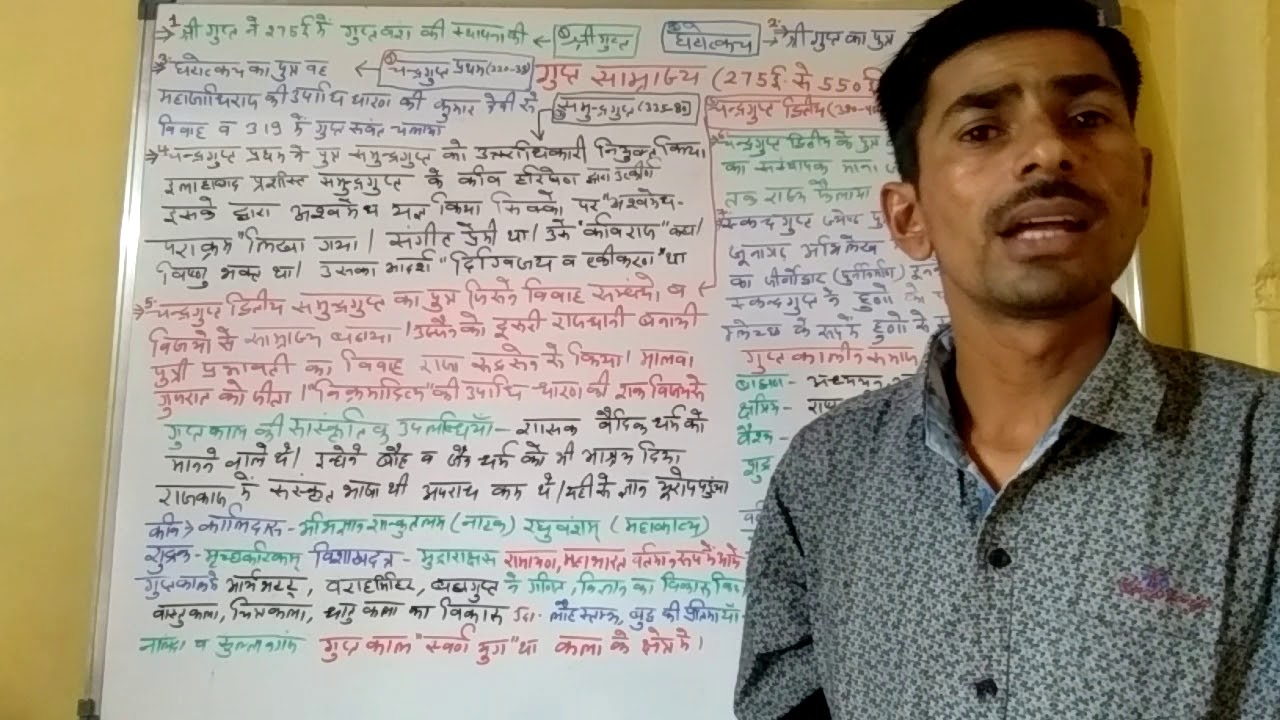 → 1. श्री गुप्त ने 275 ई. में गुप्त वंश की स्थापना की ← ① श्री गुप्त
② घटोत्कच → 2. श्री गुप्त का पुत्र
→ 3. घटोत्कच का पुत्र वह ← ③ चन्द्रगुप्त प्रथम (320-35)
गुप्त साम्राज्य (275 ई. से 550 ई.
महाराजाधिराज की उपाधि धारण की कुमार देवी से
विवाह व 319 में गुप्त संवत चलाया
समुन्द्रगुप्त (335-80)
चन्द्रगुप्त द्वितीय (380-
→ 4. चन्द्रगुप्त प्रथम ने पुत्र समुन्द्रगुप्त को उत्तराधिकारी नियुक्त किया।
इलाहाबाद प्रशस्ति समुन्द्रगुप्त के कवि हरिषेण द्वारा उत्कीर्ण
इसके द्वारा अश्वमेध यज्ञ किया सिक्को पर "अश्वमेध-
पराक्रम" लिखा गया। संगीत प्रेमी था। उसे "कविराज" कहा।
विष्णु भक्त था। उसका आदर्श "दिग्विजय व एकीकरण" था
→ 5. चन्द्रगुप्त द्वितीय समुन्द्रगुप्त का पुत्र जिसने विवाह सम्बन्धो व
विजयो से साम्राज्य बढाया। उज्जैन को दूसरी राजधानी बनायी
पुत्री प्रभावती का विवाह राजा रूद्रसेन से किया। मालवा
गुजरात को जीता। "विक्रमादित्य" की उपाधि धारण की शक विजय से
गुप्तकाल की सांस्कृतिक उपलब्धियाँ- शासक वैदिक धर्म को
मानने वाले थे। इन्होने बौद्ध व जैन धर्म को भी आश्रय दिया
राजकाज में संस्कृत भाषा थी अपराध कम थे। यही से ज्ञान यूरोप पहुंचा
कवि → कालिदास- अभिज्ञान शाकुन्तलम (नाटक) रघुवंशम् (महाकाव्य)
शुद्रक- मृच्छकटिकम् विशाखदत्त - मुद्राराक्षस रामायण, महाभारत वर्तमान रूप में आये
गुप्तकाल में आर्यभट्ट, वराहमिहिर, ब्रह्मगुप्त ने गणित, विज्ञान का विकास किया
वास्तुकला, चित्रकला, धातु कला का विकास उदा- लौह स्तम्भ, बुद्ध की प्रतिमायाँ-
नालंदा व सुल्तानगंज गुप्त काल "स्वर्ण युग" था कला के क्षेत्र में।
चन्द्रगुप्त द्वितीय के पुत्र
का संस्थापक माना
तक राज्य फैलाया
स्कन्दगुप्त ज्येष्ठ पु
जूनागढ़ अभिलेख
का जीर्णोद्धार (पुर्ननिर्माण)
स्कन्दगुप्त ने हूणो
म्लेच्छ के रूप में हूणो
गुप्तकालीन समाज
ब्राह्मण- अध्ययन
क्षत्रिय-
वैश्य-
शुद्र